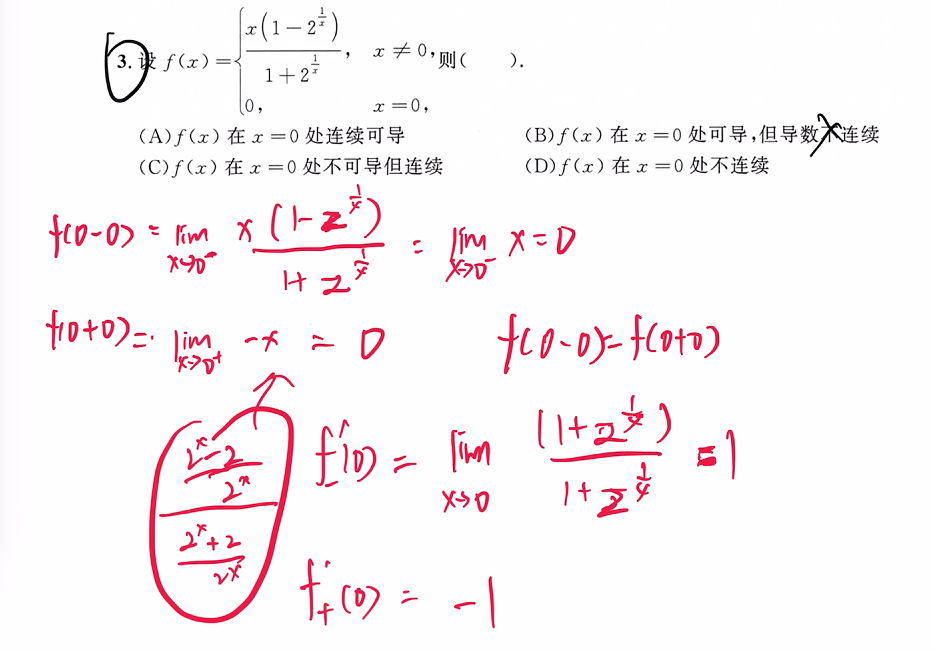 3. 设 f(x) = { x(1-2^{1/x}) / (1+2^{1/x}), x ≠ 0, 则( ).
0, x = 0,
(A) f(x) 在 x = 0 处连续可导 (B) f(x) 在 x = 0 处可导,但导数不连续
(C) f(x) 在 x = 0 处不可导但连续 (D) f(x) 在 x = 0 处不连续
f(0-0) = lim_{x→0^-} x(1-2^{1/x}) / (1+2^{1/x}) = lim_{x→0^-} x = 0
f(0+0) = lim_{x→0^+} -x = 0 f(0-0) = f(0+0)
(2^x-2)/2^x / (2^x+2)/2^x f_-'(0) = lim_{x→0} (1+2^{1/x}) / (1+2^{1/x}) = 1
f_+'(0) = -1